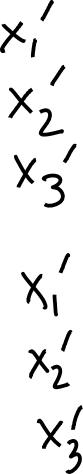 x₁'
x₂'
x₃'
x₁'
x₂'
x₃'